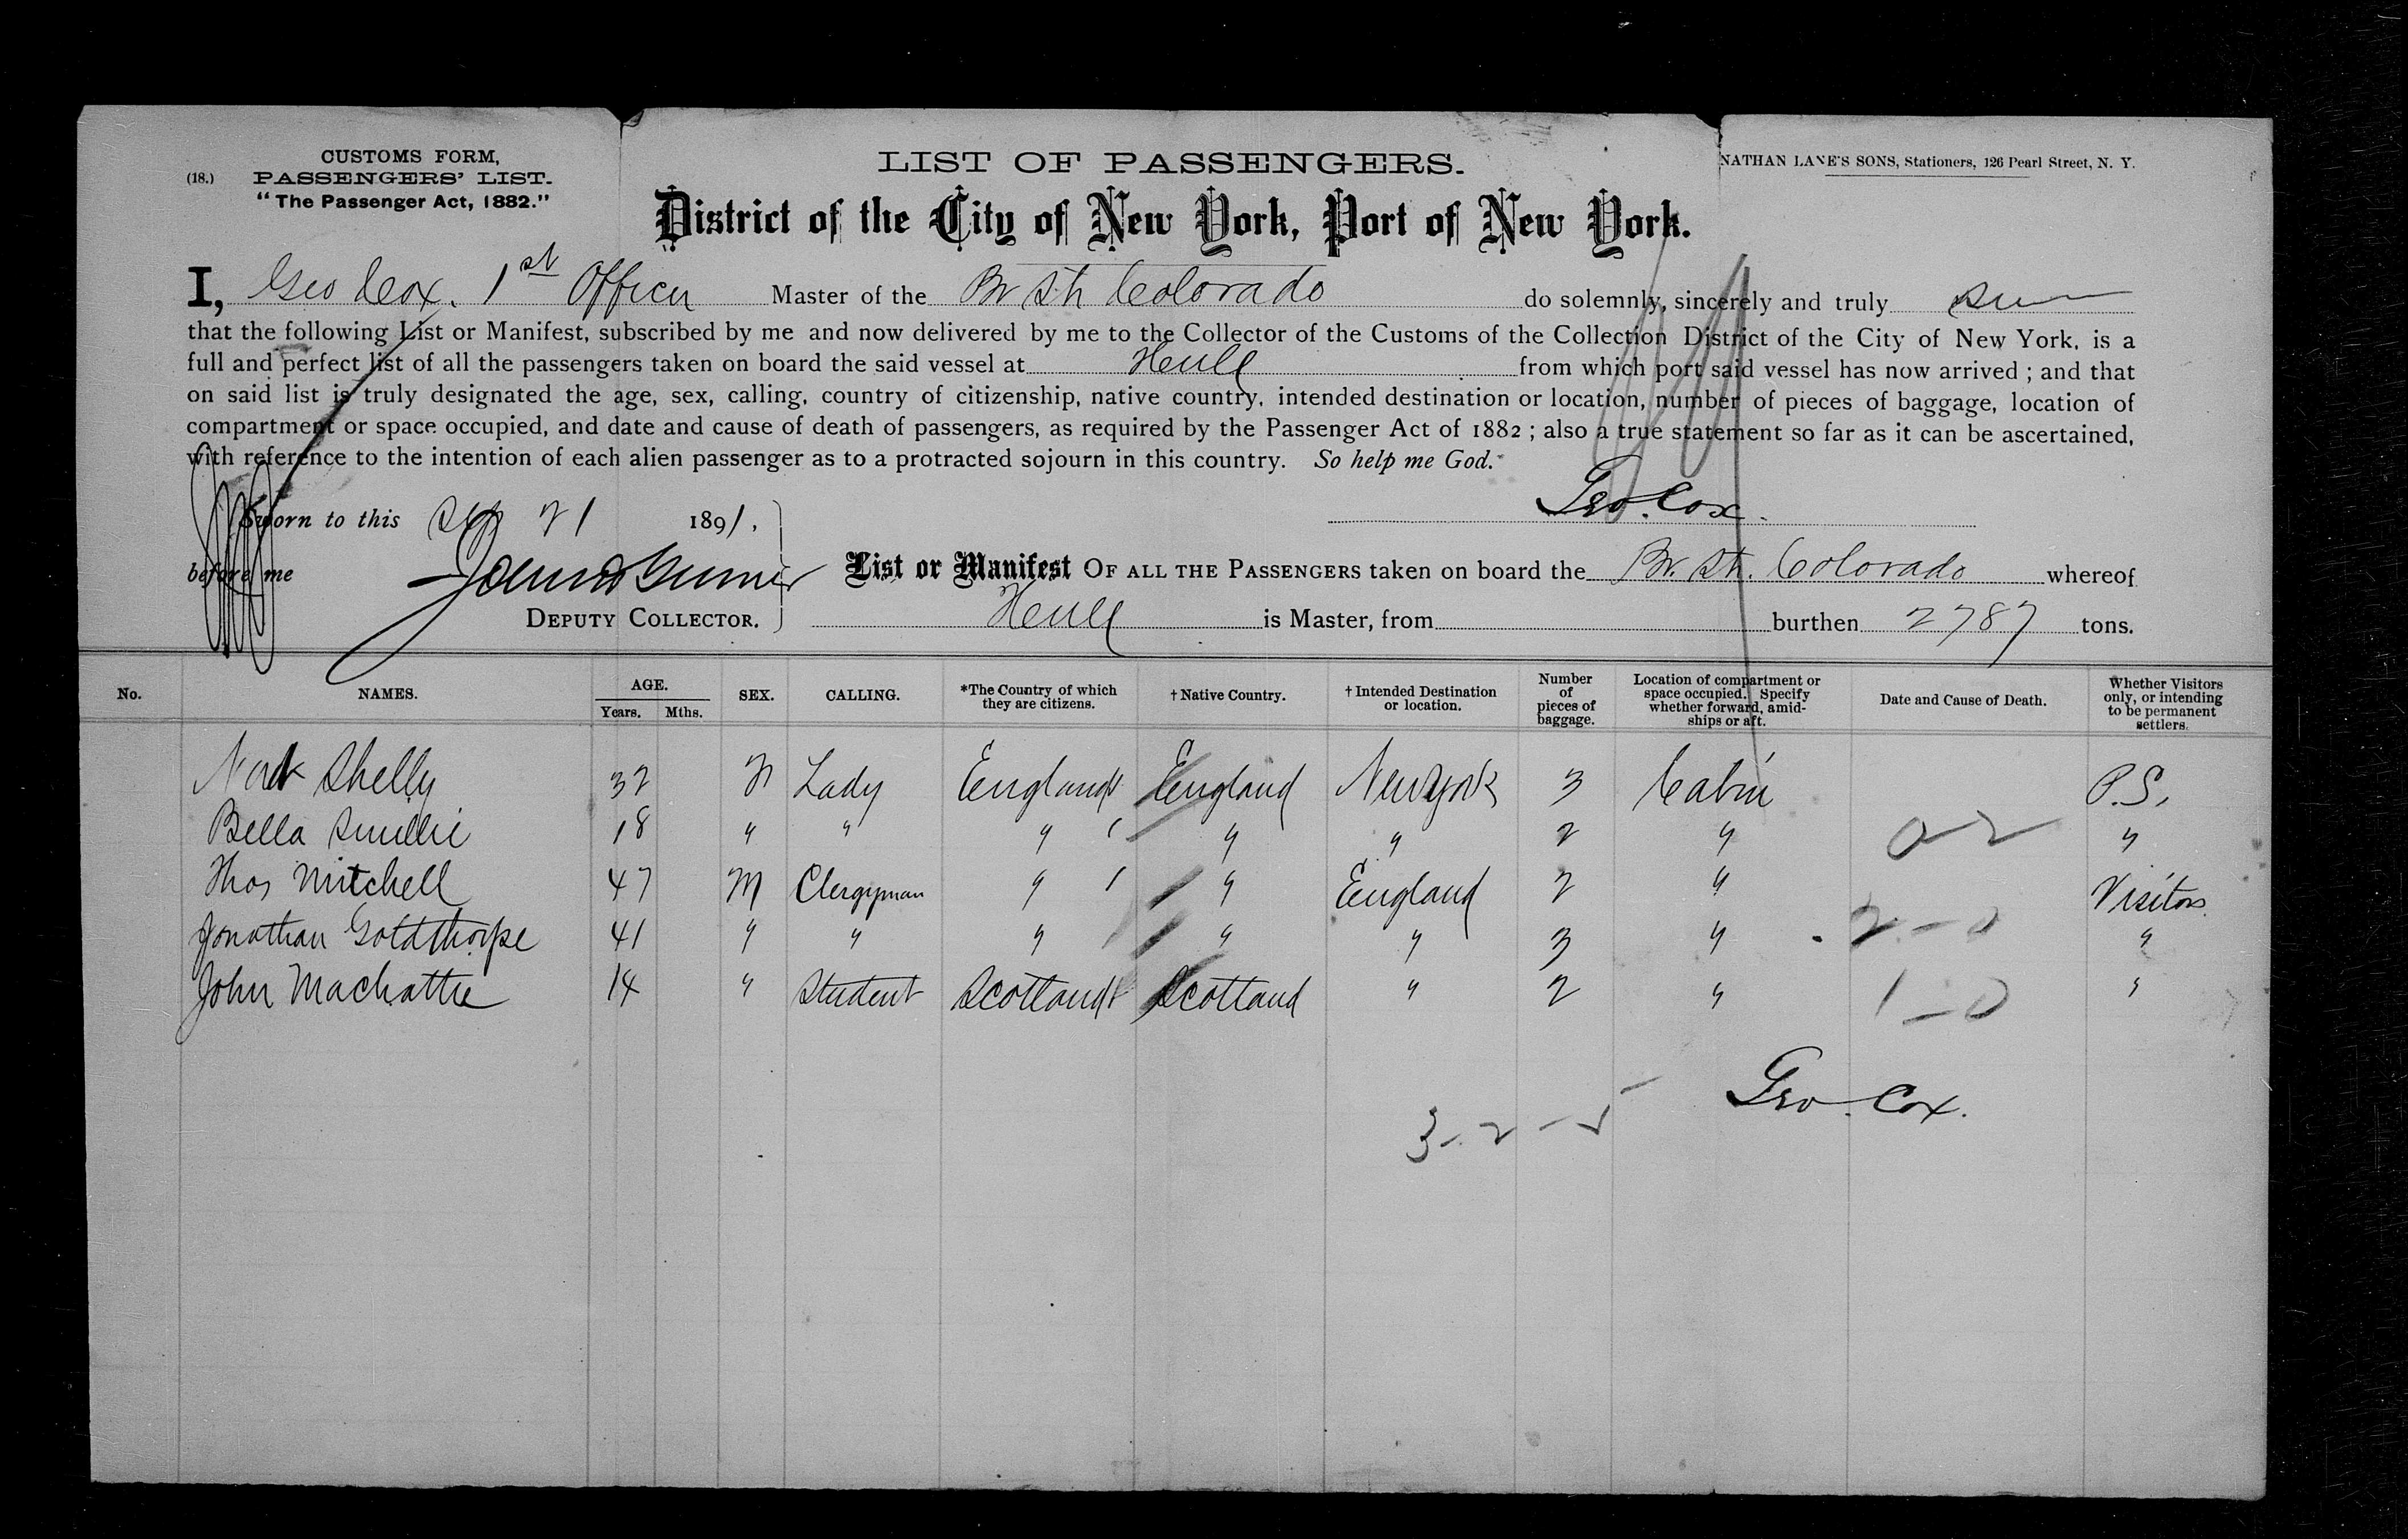 CUSTOMS FORM,
(18.) PASSENGERS' LIST.
"The Passenger Act, 1882."
LIST OF PASSENGERS.
NATHAN LANE'S SONS, Stationers, 126 Pearl Street, N. Y.
District of the City of New York, Port of New York.
I, Geo Cox. 1st Officer Master of the Br Str Colorado do solemnly, sincerely and truly
that the following List or Manifest, subscribed by me and now delivered by me to the Collector of the Customs of the Collection District of the City of New York, is a
full and perfect list of all the passengers taken on board the said vessel at Hull from which port said vessel has now arrived ; and that
on said list is truly designated the age, sex, calling, country of citizenship, native country, intended destination or location, number of pieces of baggage, location of
compartment or space occupied, and date and cause of death of passengers, as required by the Passenger Act of 1882 ; also a true statement so far as it can be ascertained,
with reference to the intention of each alien passenger as to a protracted sojourn in this country. So help me God.
Geo. Cox.
Sworn to this Sep 21 1891.
before me
DEPUTY COLLECTOR.
List or Manifest OF ALL THE PASSENGERS taken on board the Br. Str. Colorado whereof
Hull is Master, from burthen 2787 tons.
No. NAMES. AGE. Years. Mths. SEX. CALLING. *The Country of which they are citizens. † Native Country. † Intended Destination or location. Number of pieces of baggage. Location of compartment or space occupied. Specify whether forward, amidships or aft. Date and Cause of Death. Whether Visitors only, or intending to be permanent settlers.
Shelly 32 Lady England England New York 3 Cabin P.S.
Bella Smillie 18 " " " " " 2 " 0-2 "
Thos Mitchell 47 M Clergyman " " England 2 " Visitors
Jonathan Goldthorpe 41 " " " " " 3 " 2-0 "
John Machattie 14 " Student Scotland Scotland " 2 " 1-0 "
Geo. Cox.
3-2-5